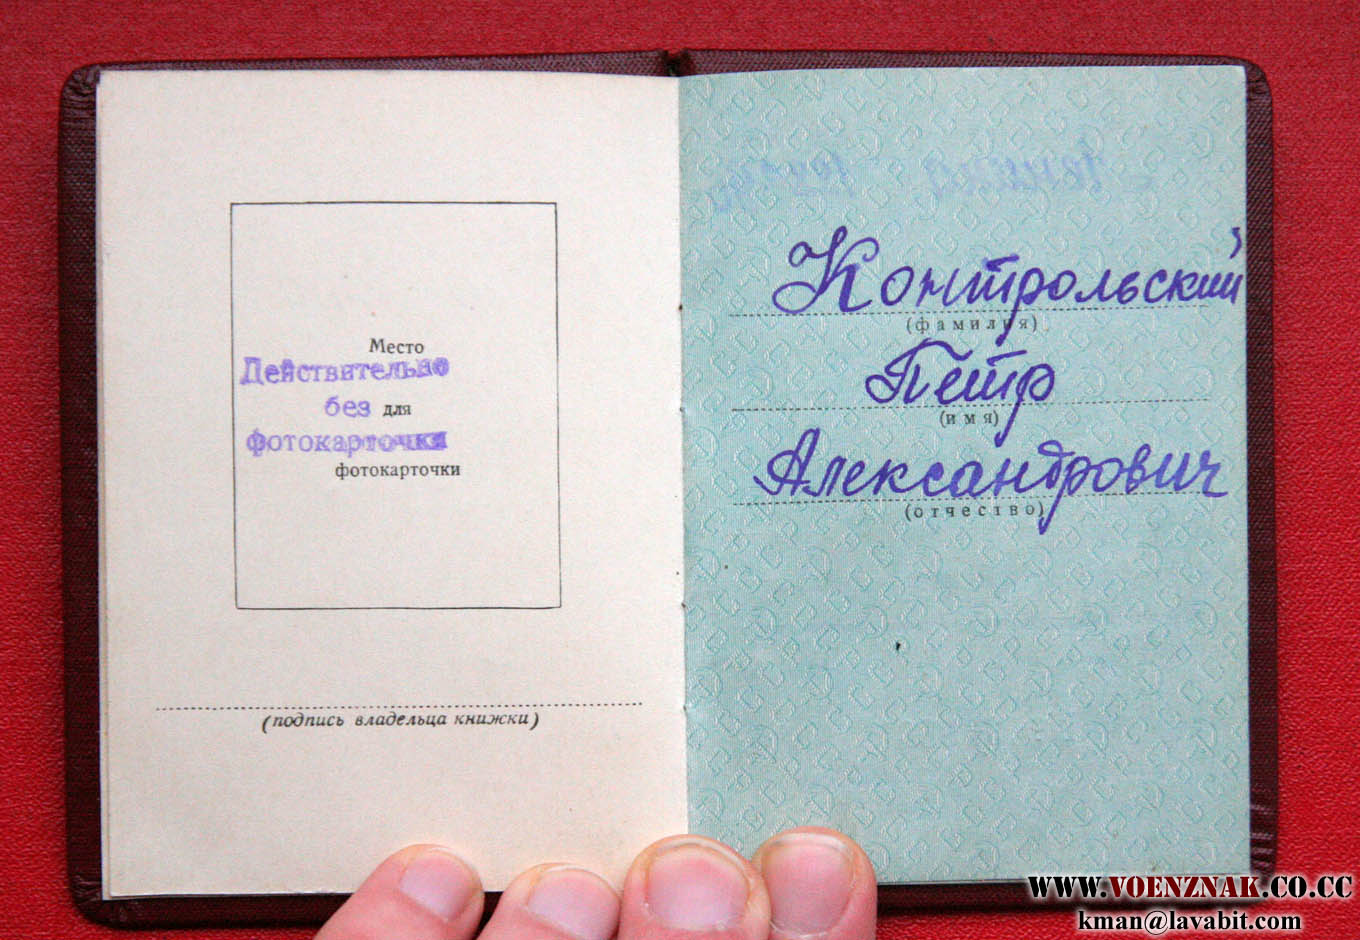 Место
Действительно
без для
фотокарточки
фотокарточки
(подпись владельца книжки)
Контрольский
(фамилия)
Петр
(имя)
Александрович
(отчество)
WWW.VOENZNAK.CO.CC
kman@lavabit.com